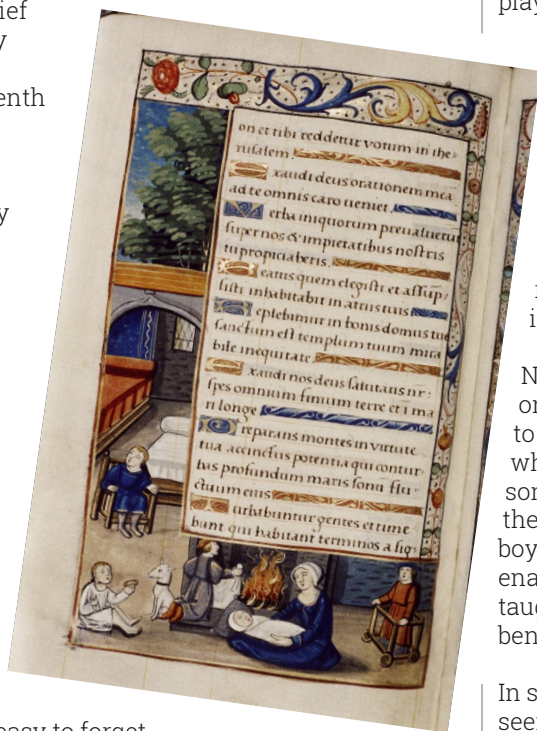 ief
enth
on et tibi reddetur votum in the
rusalem.
Exaudi deus orationem mea
ad te omnis caro veniet.
Verba iniquorum prevaluerut
super nos & impietatibus nostris
tu propiciaberis.
Beatus quem elegisti et assup
sisti inhabitabit in atriis tuis
Replebimur in bonis domus tue
sanctum est templum tuum mira
bile in equitate
Exaudi nos deus salutaris nr:
spes omnium finium terre et i ma
ri longe
Preparans montes in virtute
tua accinctus potentia qui contur
bas profundum maris sonu flu
ctuum eius
Turbabuntur gentes et time
bunt qui habitant terminos a sig
easy to forget
play
N
or
to
wh
the
boy
ena
taug
ben
In s